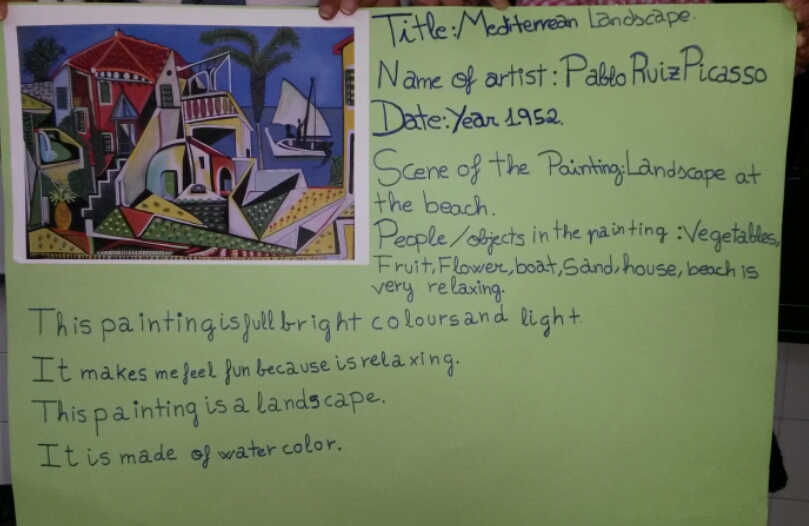 Title: Mediterrean Landscape.
Name of artist: Pablo Ruiz Picasso
Date: Year 1952.
Scene of the Painting: Landscape at
the beach.
People/objects in the painting: Vegetables,
Fruit, Flower, boat, Sand, house, beach is
very relaxing.
This painting is full bright colours and light
It makes me feel fun because is relaxing.
This painting is a landscape.
It is made of water color.